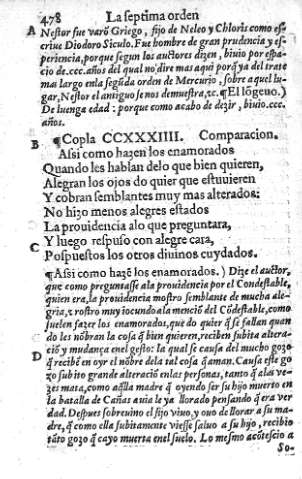 478 La septima orden
A Nestor fue varõ Griego, fijo de Neleo y Chloris como es-
criue Diodoro Siculo. Fue hombre de gran prudencia y es-
periencia, porque segun los auctores dizen, biuio por espa-
cio de .ccc. años del qual no dire mas aqui porq̃ ya del trate
mas largo enla segũda orden de Mercurio, sobre aquel lu-
gar, Nestor el antiguo se nos demuestra, &c. ¶ El lõgeuo.)
De luenga edad: porque como acabo de dezir, biuio.ccc.
años.
B ¶ Copla CCXXXIIII. Comparacion.
Assi como hazen los enamorados
Quando les hablan delo que bien quieren,
Alegran los ojos do quier que estuuieren
Y cobran semblantes muy mas alterados:
No hizo menos alegres estados
La prouidencia alo que preguntara,
Y luego respuso con alegre cara,
C Pospuestos los otros diuinos cuydados.
¶ Assi como hazẽ los enamorados.) Dize el auctor,
que como preguntasse ala prouidencia por el Condestable,
quien era, la prouidencia mostro semblante de mucha ale-
gria, & rostro muy iocundo ala menciõ del Cõdestable, como
suelen fazer los enamorados, que do quier q̃ se fallan quan
do les nõbran la cosa q̃ bien quieren, reciben subita altera-
D ciõ y mudança enel gesto: la qual se causa del mucho gozo
q̃ recibẽ en oyr el nõbre dela tal cosa q̃ aman. Causa este go
zo subito grande alteraciõ enlas personas, tanto q̃ alas ve-
zes mata, como aq̃lla madre q̃ oyendo ser su hijo muerto en
la batalla de Cañas auia le ya llorado pensando q̃ era ver
dad. Despues sobreuino el fijo viuo, y ouo de llorar a su ma-
dre, q̃ como ella subitamente viesse saluo a su hijo, recibio
tãto gozo q̃ cayo muerta enel suelo. Lo mesmo acõtescio a
So-